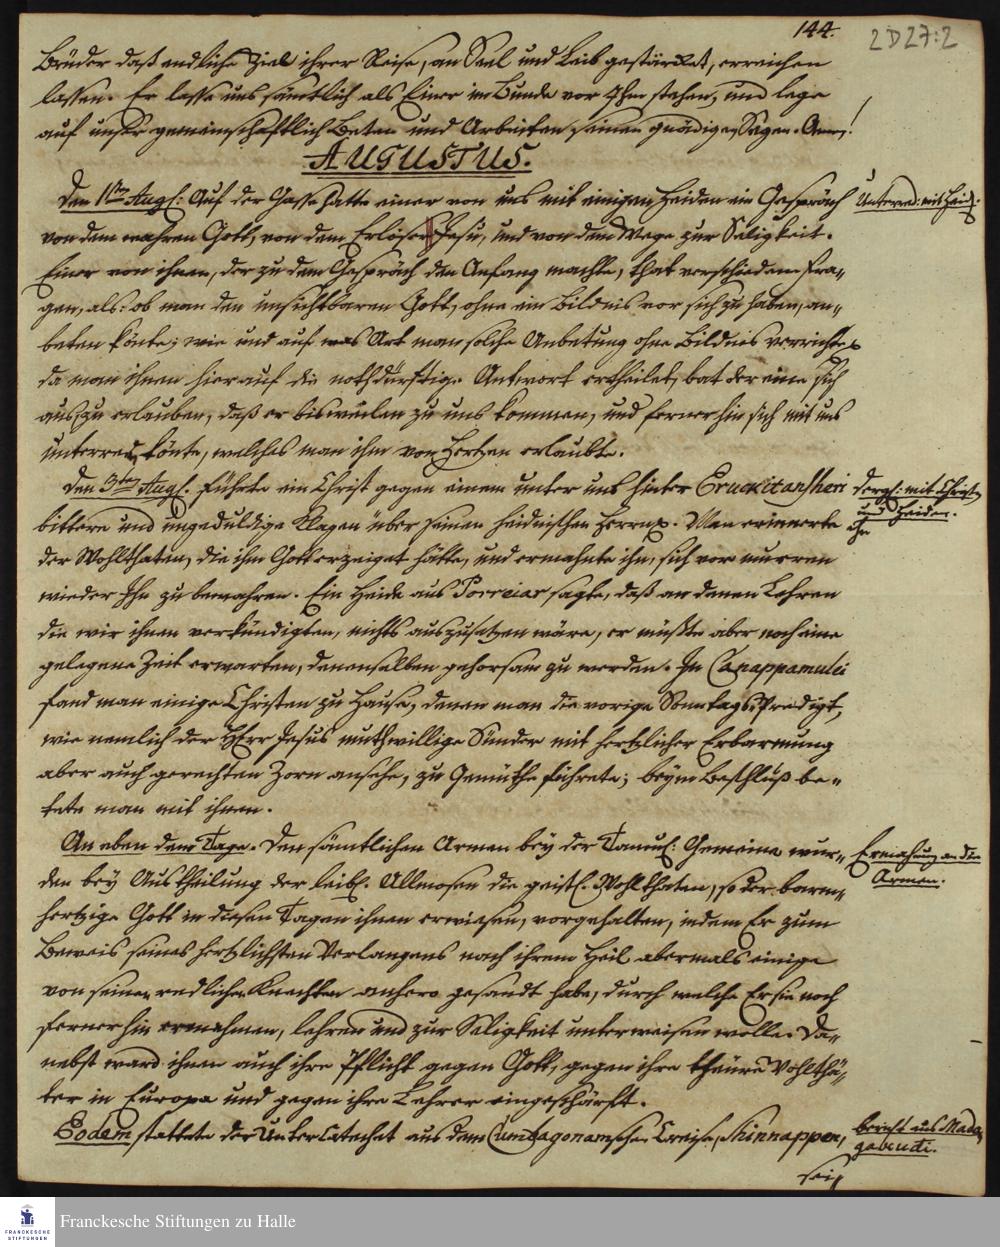 144.
2 D 27:2
Brüder daß endliche Ziel ihrer Reise, an Seel und Leib gestärket, erreichen
lassen. Er lasse uns sämtlich als Einer im Bunde vor Ihm stehen, und lege
auf unser gemeinschaftlich Beten und Arbeiten, seinen gnädigen Segen. Amen!
AUGUSTUS.
Den 1ten Aug: Auf der Gasse hatte einer von uns mit einigen Heiden ein Gespräch
Unterred: mit Heid:
von dem wahren Gott, von dem Erlöser Jesu, und von dem Wege zur Seligkeit.
Einer von ihnen, der zu dem Gespräch den Anfang machte, that verschiedene Fra-
gen, als: ob man den unsichtbaren Gott, ohne ein Bildnis vor sich zu haben, an-
beten könte; wie und auf was Art man solche Anbetung ohne Bildnis verrichte
da man ihnen hierauf die nothdürftige Antwort ertheilet, bat der eine sich
aus, zu erlauben, daß er bisweilen zu uns kommen, und fernerhin sich mit uns
unterreden könte, welches man ihm von Hertzen erlaubte.
Den 3ten Aug. führte ein Christ gegen einem unter uns hinter Eruckitanscheri
dergl: mit Christ
und Heiden.
bittere und ungeduldige Klagen über seinen heidnischen Herrn. Man erinnerte ihn
der Wohlthaten, die ihm Gott erzeiget hätte, und ermahnte ihn, sich vor murren
wieder Ihn zu bewahren. Ein Heide aus Porreiar sagte, daß an denen Lehren
die wir ihnen verkündigten, nichts auszusetzen wäre, er müßte aber noch eine
gelegene Zeit erwarten, denenselben gehorsam zu werden. In Canappamulei
fand man einige Christen zu Hause, denen man die vorige Sonntags Predigt,
wie nemlich der HErr Jesus muthwillige Sünder mit hertzlicher Erbarmung
aber auch gerechten Zorn ansehe, zu Gemüthe führete; beym Beschluß be-
tete man mit ihnen.
An eben dem Tage. Den sämtlichen Armen bey der Tamul: Gemeine wur-
Ermahnung an die
Armen.
den bey Austheilung der leibl. Allmosen die geistl. Wohlthaten, so der barm-
hertzige Gott in diesen Tagen ihnen erwiesen, vorgehalten, indem Er zum
Beweis seines hertzlichsten Verlangens nach ihrem Heil abermals einige
von seinen redlichen Knechten anhero gesandt habe, durch welche Er sie noch
fernerhin ermahnen, lehren und zur Seligkeit unterweisen wolle. Da-
nebst ward ihnen auch ihre Pflicht gegen Gott, gegen ihre theure Wohlthä-
ter in Europa und gegen ihre Lehrer eingeschärft.
Eodem stattete der Unter Catechet aus dem Cumbagonamschen Kreise, Schinnappen,
bericht aus Mada
gavendi.
sei-
Franckesche Stiftungen zu Halle
FRANCKESCHE
STIFTUNGEN